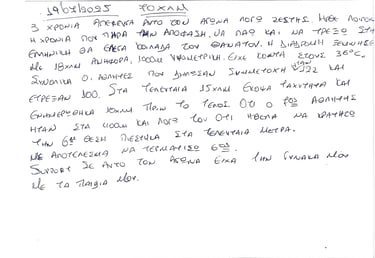 19/07/2025 70ΧΛΜ
3 ΧΡΟΝΙΑ ΑΠΕΦΕΥΓΑ ΑΥΤΟ ΤΟΝ ΑΓΩΝΑ ΛΟΓΩ ΖΕΣΤΗΣ. ΗΡΘΕ ΛΟΙΠΟΝ
Η ΧΡΟΝΙΑ ΠΟΥ ΠΗΡΑ ΤΗΝ ΑΠΟΦΑΣΗ ΝΑ ΠΑΩ ΚΑΙ ΝΑ ΤΡΕΞΩ ΣΤΗ
ΕΛΛΗΝΙΚΗ ΘΑ ΕΛΕΓΑ ΚΟΙΛΑΔΑ ΤΟΥ ΘΑΝΑΤΟΥ. Η ΔΙΑΔΡΟΜΗ ΞΕΚΙΝΗΣΕ
ΜΕ 18ΧΛΜ ΑΝΗΦΟΡΑ, 1000Μ ΥΨΟΜΕΤΡΙΚΗ. ΕΙΧΕ ΚΟΝΤΑ ΣΤΟΥΣ 36°C.
ΣΥΝΟΛΙΚΑ Ο. ΑΘΛΗΤΕΣ ΠΟΥ ΔΗΛΩΣΑΝ ΣΥΜΜΕΤΟΧΗ ΗΤΑΝ 122 ΚΑΙ
ΕΤΡΕΞΑΝ 100. ΣΤΑ ΤΕΛΕΥΤΑΙΑ 15ΧΛΜ ΕΚΟΨΑ ΤΑΧΥΤΗΤΑ ΚΑΙ
ΕΝΗΜΕΡΩΘΗΚΑ 10ΧΛΜ ΠΡΙΝ ΤΟ ΤΕΛΟΣ ΟΤΙ Ο 7ΟΣ ΑΘΛΗΤΗΣ
ΗΤΑΝ ΣΤΑ 400Μ ΚΑΙ ΛΟΓΩ ΤΟΥ ΟΤΙ ΗΘΕΛΑ ΝΑ ΚΡΑΤΗΣΩ
ΤΗΝ 6η ΘΕΣΗ ΠΙΕΣΤΗΚΑ ΣΤΑ ΤΕΛΕΥΤΑΙΑ ΜΕΤΡΑ.
ΜΕ ΑΠΟΤΕΛΕΣΜΑ ΝΑ ΤΕΡΜΑΤΙΣΩ 6ΟΣ.
SUPPORT ΣΕ ΑΥΤΟ ΤΟΝ ΑΓΩΝΑ ΕΙΧΑ ΤΗΝ ΓΥΝΑΙΚΑ ΜΟΥ
ΜΕ ΤΑ ΠΑΙΔΙΑ ΜΟΥ.